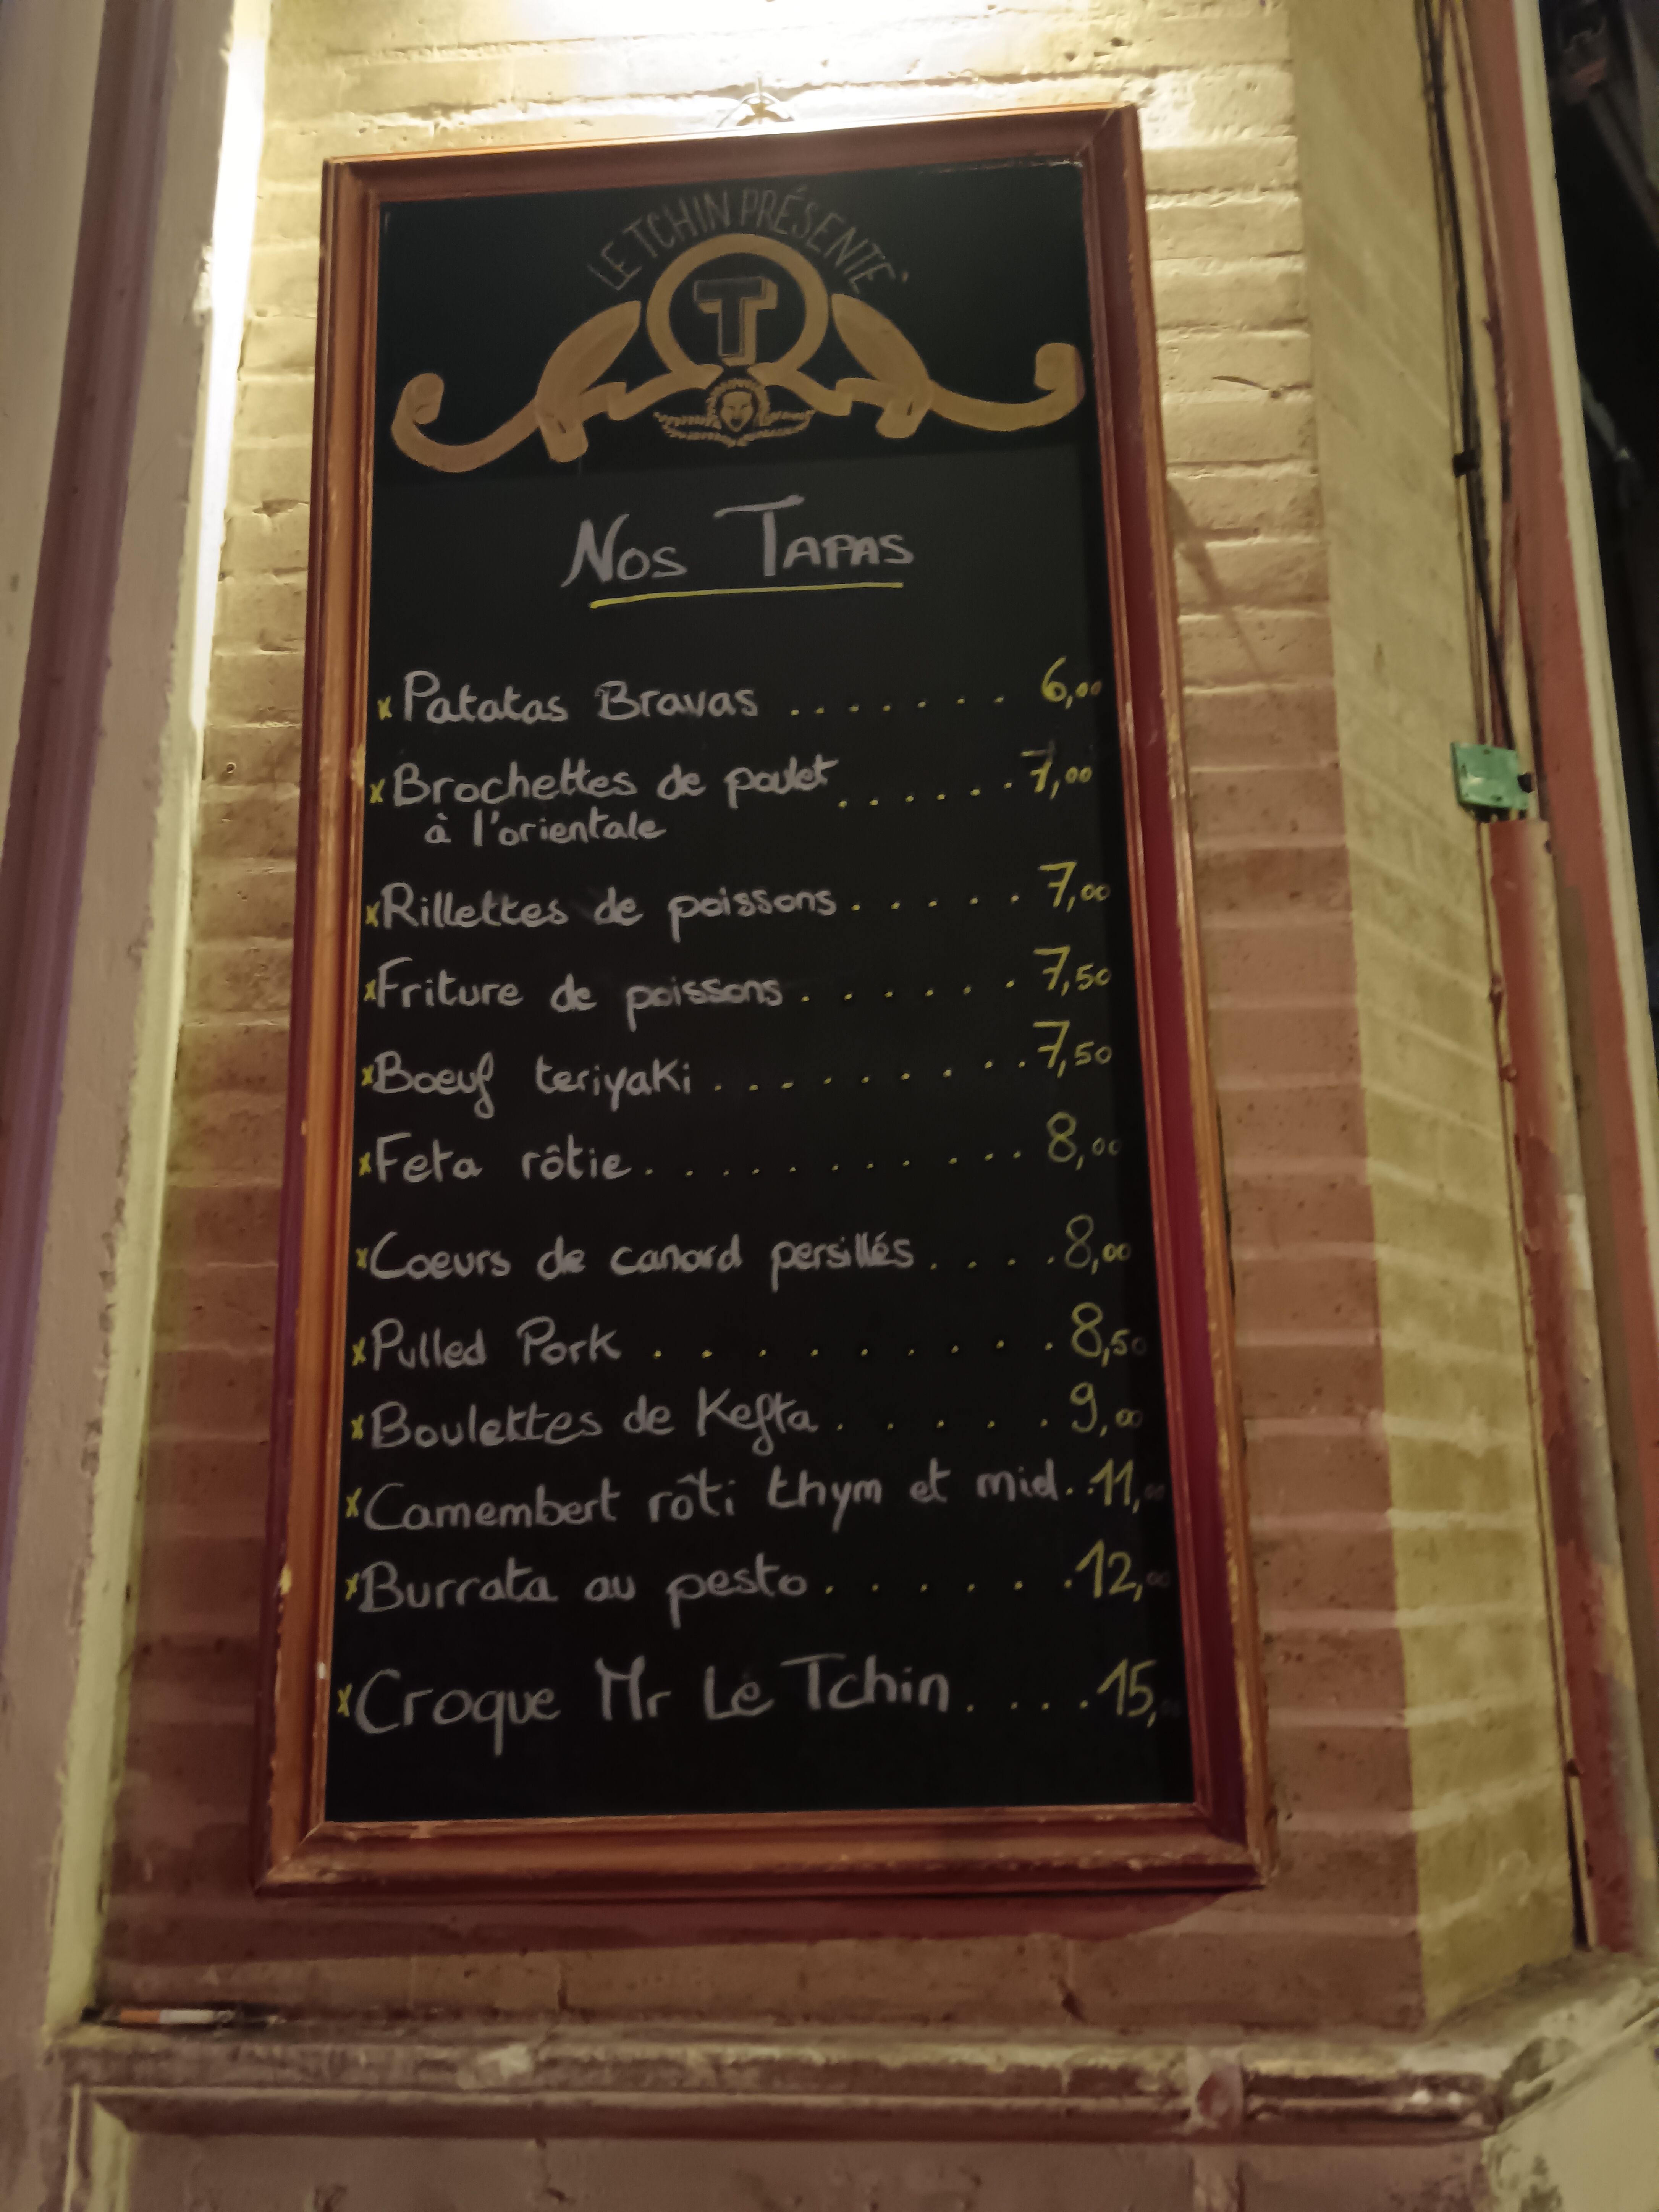 LE TCHIN PRÉSENTE
T
Nos Tapas
x Patatas Bravas ....... 6,00
x Brochettes de poulet ...... 7,00
à l'orientale
x Rillettes de poissons ..... 7,00
x Friture de poissons ...... 7,50
x Boeuf teriyaki ......... 7,50
x Feta rôtie ........... 8,00
x Coeurs de canard persillés .... 8,00
x Pulled Pork ........ 8,50
x Boulettes de Kefta ..... 9,00
x Camembert rôti thym et miel .. 11,00
x Burrata au pesto ...... 12,00
x Croque Mr Le Tchin .... 15,00